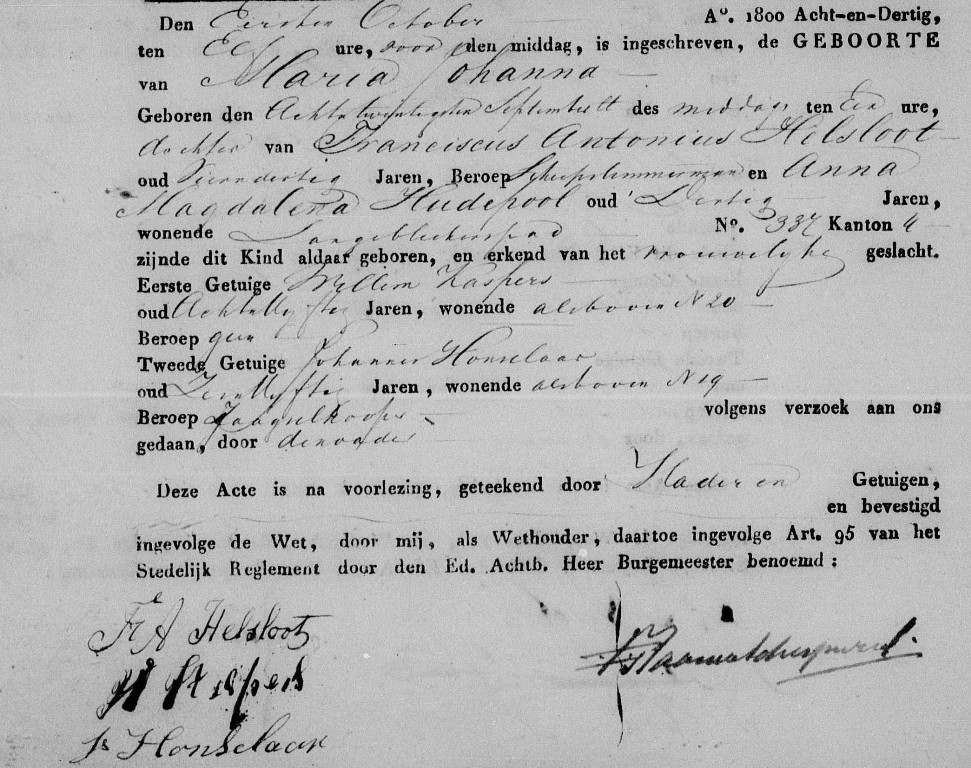 Den Eersten October A°. 1800 Acht-en-Dertig,
ten Elf ure, voor den middag, is ingeschreven, de GEBOORTE
van Maria Johanna
Geboren den Achtentwintigsten September ll des middags ten Een ure,
dochter van Franciscus Antonius Helsloot
oud Vierendertig Jaren, Beroep Scheepstimmerman en Anna
Magdalena Hudepool oud Dertig Jaren,
wonende Langebleekerspad N°. 337 Kanton 4
zijnde dit Kind aldaar geboren, en erkend van het vrouwelijke geslacht.
Eerste Getuige Willem Kaspers
oud Achtenvyftig Jaren, wonende alsboven N 20
Beroep geen
Tweede Getuige Johannes Honselaar
oud Zevenvyftig Jaren, wonende alsboven N 19
Beroep volgens verzoek aan ons
gedaan, door den vader
Deze Acte is na voorlezing, geteekend door Vader en Getuigen,
en bevestigd
ingevolge de Wet, door mij, als Wethouder, daartoe ingevolge Art. 95 van het
Stedelijk Reglement door den Ed. Achtb. Heer Burgemeester benoemd:
Fr A Helsloot
W Kaspers
Js Honselaar